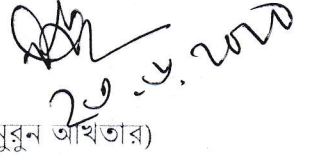 ২৩.৬.২০২০
নুরুন আখতার)